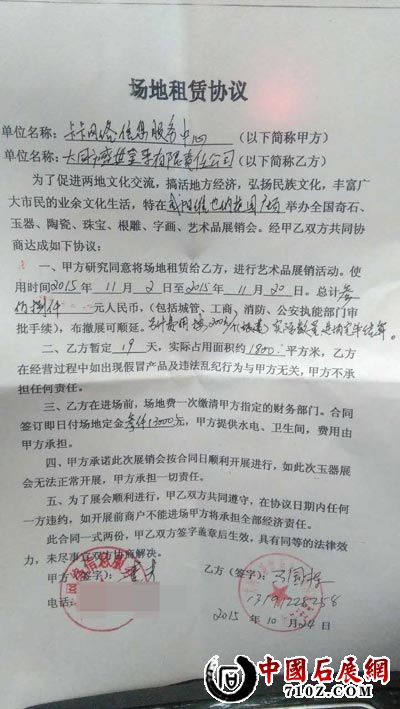 场地租赁协议
单位名称：卡卡网络信息服务中心（以下简称甲方）
单位名称：大同市 有限责任公司（以下简称乙方）
为了促进两地文化交流，搞活地方经济，弘扬民族文化，丰富广
大市民的业余文化生活，特在 维也纳花园广场 举办全国奇石、
玉器、陶瓷、珠宝、根雕、字画、艺术品展销会。经甲乙双方共同协
商达成如下协议：
一、甲方研究同意将场地租赁给乙方，进行艺术品展销活动。使
用时间2015年 11月 2日至2015年 11月 20日。总计叁
万捌仟 元人民币，（包括城管、工商、消防、公安执能部门审
批手续），布撤展可顺延。
二、乙方暂定 19 天，实际占用面积约1800 平方米，乙方
在经营过程中如出现假冒产品及违法乱纪行为与甲方无关，甲方不承
担任何责任。
三、乙方在进场前，场地费一次缴清甲方指定的财务部门。合同
签订即日付场地定金叁仟(3000)元，甲方提供水电、卫生间，费用由
甲方承担。
四、甲方承诺此次展销会按合同日顺利开展进行，如此次玉器展
会无法正常开展，甲方承担一切责任。
五、为了展会顺利进行，甲乙双方共同遵守，在协议日期内任何
一方违约，如开展前商户不能进场甲方将承担全部经济责任。
此合同一式两份，甲乙双方签字盖章后生效，具有同等的法律效
力，未尽事宜双方协商解决。
甲方（签字）：
乙方（签字）：
电话：
13191228258
2015 年 10 月 24 日
中國石展網
7102.com